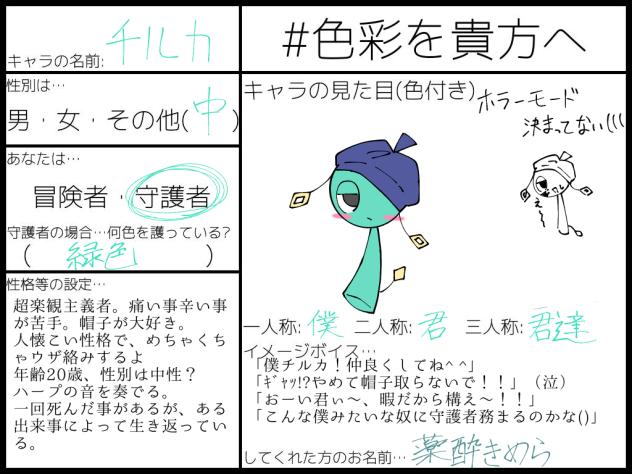 キャラの名前: チルカ
#色彩を貴方へ
性別は…
男・女・その他(中)
あなたは…
冒険者・守護者
守護者の場合…何色を護っている?
(緑色)
性格等の設定…
超楽観主義者。痛い事辛い事
が苦手。帽子が大好き。
人懐こい性格で、めちゃくち
ゃウザ絡みするよ
年齢20歳、性別は中性?
ハープの音を奏でる。
一回死んだ事があるが、ある
出来事によって生き返ってい
る。
キャラの見た目(色付き)
ホラーモード
決まってない(((
え〜
一人称: 僕 二人称: 君 三人称: 君達
イメージボイス…
「僕チルカ!仲良くしてね^ ^」
「ｷﾞｬｯ!?やめて帽子取らないで!!」(泣)
「おーい君ぃ〜、暇だから構え〜!!」
「こんな僕みたいな奴に守護者務まるのかな()」
してくれた方のお名前… 薬酔きめら